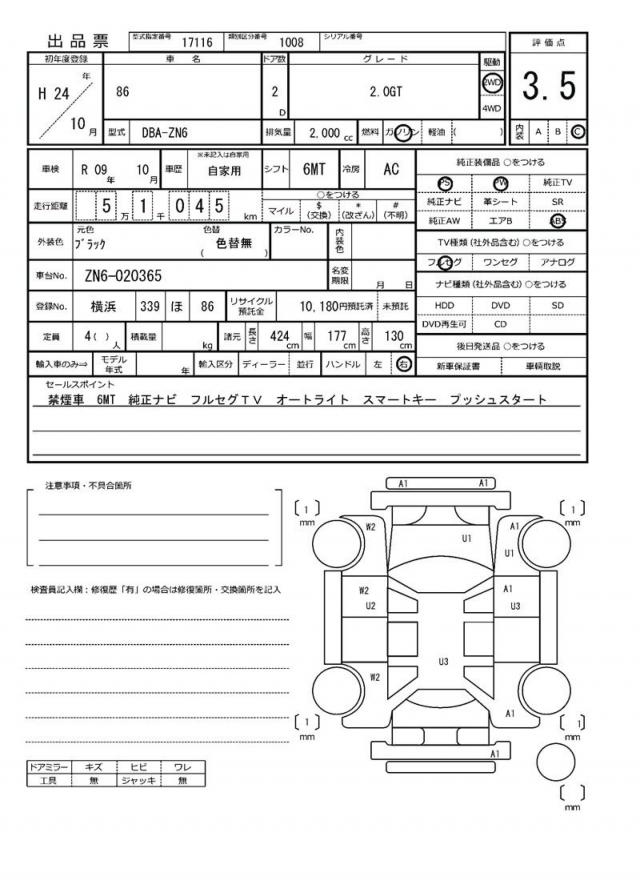 出品票 型式指定番号 17116 類別区分番号 1008 シリアル番号
評価点
3.5
内装 A B C
初年度登録 車名 ドア数 グレード 駆動
H 24 年 10 月
86 2 D 2.0GT 2WD
4WD
型式 DBA-ZN6 排気量 2,000 cc 燃料 ガソリン 軽油 ( )
車検 R 09 年 10 月 車歴 ※未記入は自家用 自家用 シフト 6MT 冷房 AC
走行距離 5 万 1 千 0 4 5 km
○をつける
マイル $ (交換) * (改ざん) # (不明)
外装色 元色 ブラック 色替 ( 色替無 ) カラーNo. 内装色
車台No. ZN6-020365 名変期限 月 日
登録No. 横浜 339 ほ 86 リサイクル預託金 10,180円預託済 未預託
定員 4( ) 人 積載量 kg 諸元 長さ 424 cm 幅 177 cm 高さ 130 cm
輸入車のみ⇒ モデル年式 年 輸入区分 ディーラー 並行 ハンドル 左 右
純正装備品 ○をつける
PS PW 純正TV
純正ナビ 革シート SR
純正AW エアB ABS
TV種類 (社外品含む) ○をつける
フルセグ ワンセグ アナログ
ナビ種類 (社外品含む) ○をつける
HDD DVD SD
DVD再生可 CD
後日発送品 ○をつける
新車保証書 車輌取説
セールスポイント
禁煙車 6MT 純正ナビ フルセグTV オートライト スマートキー プッシュスタート
注意事項・不具合箇所
検査員記入欄：修復歴「有」の場合は修復箇所・交換箇所を記入
ドアミラー キズ ヒビ ワレ
工具 無 ジャッキ 無
A1 A1
[ 1 ] mm
[ 1 ] mm
W2 U1 A1
U1
W2 A1
U2 U3
U3
W2
A1
[ 1 ] mm
[ 1 ] mm
A1
[ ] mm